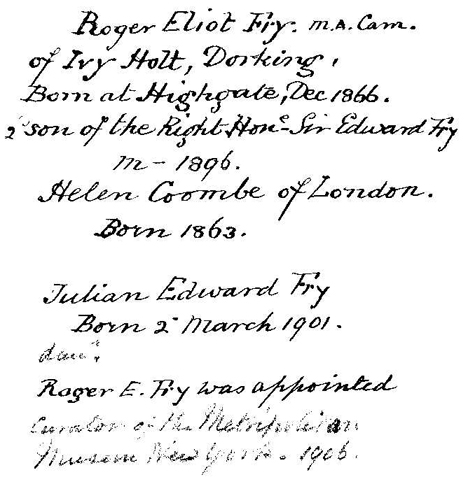 Roger Eliot Fry. M.A. Cam.
of Ivy Holt, Dorking,
Born at Highgate, Dec 1866.
2ⁿ son of the Right Honᵉ Sir Edward Fry
m - 1896.
Helen Coombe of London.
Born 1863.
Julian Edward Fry
Born 2 March 1901.
Roger E. Fry was appointed
Curator of the Metropolitan
Museum New York. 1906.